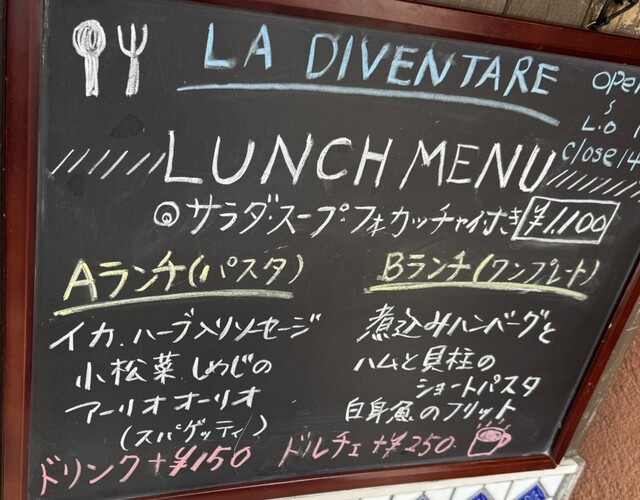 LA DIVENTARE
OPEN
L.O
Close 14
LUNCH MENU
◎サラダ・スープ・フォカッチャ付き ¥1,100
Aランチ(パスタ)
イカ、ハーブ入りソーセージ
小松菜、しめじの
アーリオオーリオ
(スパゲッティ)
Bランチ(ワンプレート)
煮込みハンバーグと
ハムと貝柱の
ショートパスタ
白身魚のフリット
ドリンク+¥150
ドルチェ+¥250